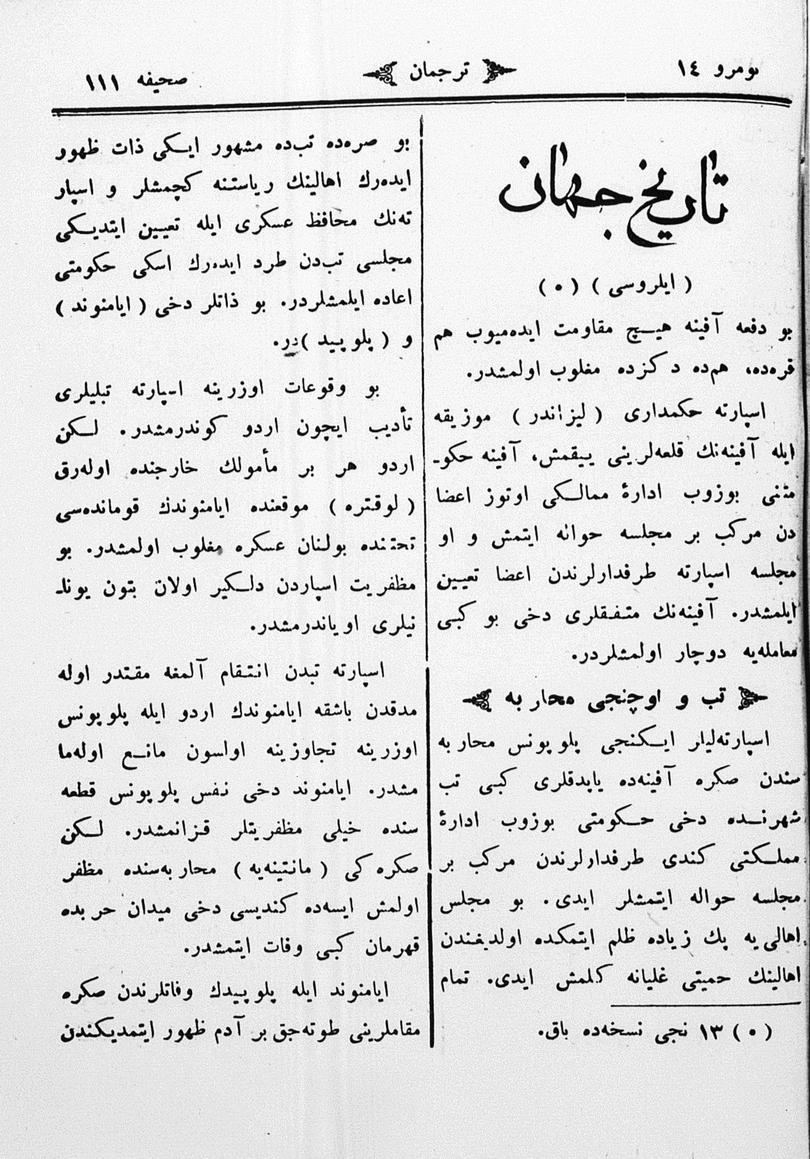 نومرو ١٤
ترجمان
صحیفه ١١١
تاریخ جهان
( ایلروسی ) ( ٥ )
بو دفعه آفینه هیـــچ مقاومت ایده‌میوب هم
قره‌ده، هم‌ده دکزده مغلوب اولمشدر.
اسپارته حکمداری ( لیزاندر ) موزیقه
ایله آفینه‌نك قلعه‌لرینی ییقمش، آفینه حکو-
متنی بوزوب ادارۀ ممالکی اوتوز اعضا
دن مرکب بر مجلسه حواله ایتمش و او
مجلسه اسپارته طرفدارلرندن اعضا تعیین
ایلمشدر. آفینه‌نك متفقلری دخی بو کبی
معامله‌یه دوچار اولمشلردر.
تب و اوچنجی محاربه
اسپارته‌لیلر ایکنجی پلوپونس محاربه
سندن صکره آفینه‌ده یاپدقلری کبی تب
شهرنده دخی حکومتی بوزوب ادارۀ
مملکتی کندی طرفدارلرندن مرکب بر
مجلسه حواله ایتمشلر ایدی. بو مجلس
اهالی‌یه پك زیاده ظلم ایتمکده اولدیغندن
اهالینك حمیتی غلیانه کلمش ایدی. تمام
( ٥ ) ١٣ نجی نسخه‌ده باق.
بو صره‌ده تب‌ده مشهور ایکی ذات ظهور
ایده‌رك اهالینك ریاستنه کچمشلر و اسپار
ته‌نك محافظ عسکری ایله تعیین ایتدیکی
مجلسی تب‌دن طرد ایده‌رك اسکی حکومتی
اعاده ایلمشلردر. بو ذاتلر دخی ( ایامنوند )
و ( پلوپید ) در.
بو وقوعات اوزرینه اسپارته تبلیلری
تأدیب ایچون اردو کوندرمشدر. لکن
اردو هر بر مأمولك خارجنده اوله‌رق
( لوقتره ) موقعنده ایامنوندك قومانده‌سی
تحتنده بولنان عسکره مغلوب اولمشدر. بو
مظفریت اسپاردن دلکیر اولان بتون یونا-
نیلری اویاندرمشدر.
اسپارته تبدن انتقام آلمغه مقتدر اوله
مدقدن باشقه ایامنوندك اردو ایله پلوپونس
اوزرینه تجاوزینه اولسون مانع اوله‌ما
مشدر. ایامنوند دخی نفس پلوپونس قطعه
سنده خیلی مظفریتلر قزانمشدر. لکن
صکره‌کی ( مانتینه‌یه ) محاربه‌سنده مظفر
اولمش ایسه‌ده کندیسی دخی میدان حربده
قهرمان کبی وفات ایتمشدر.
ایامنوند ایله پلوپیدك وفاتلرندن صکره
مقاملرینی طوته‌جق بر آدم ظهور ایتمدیکندن